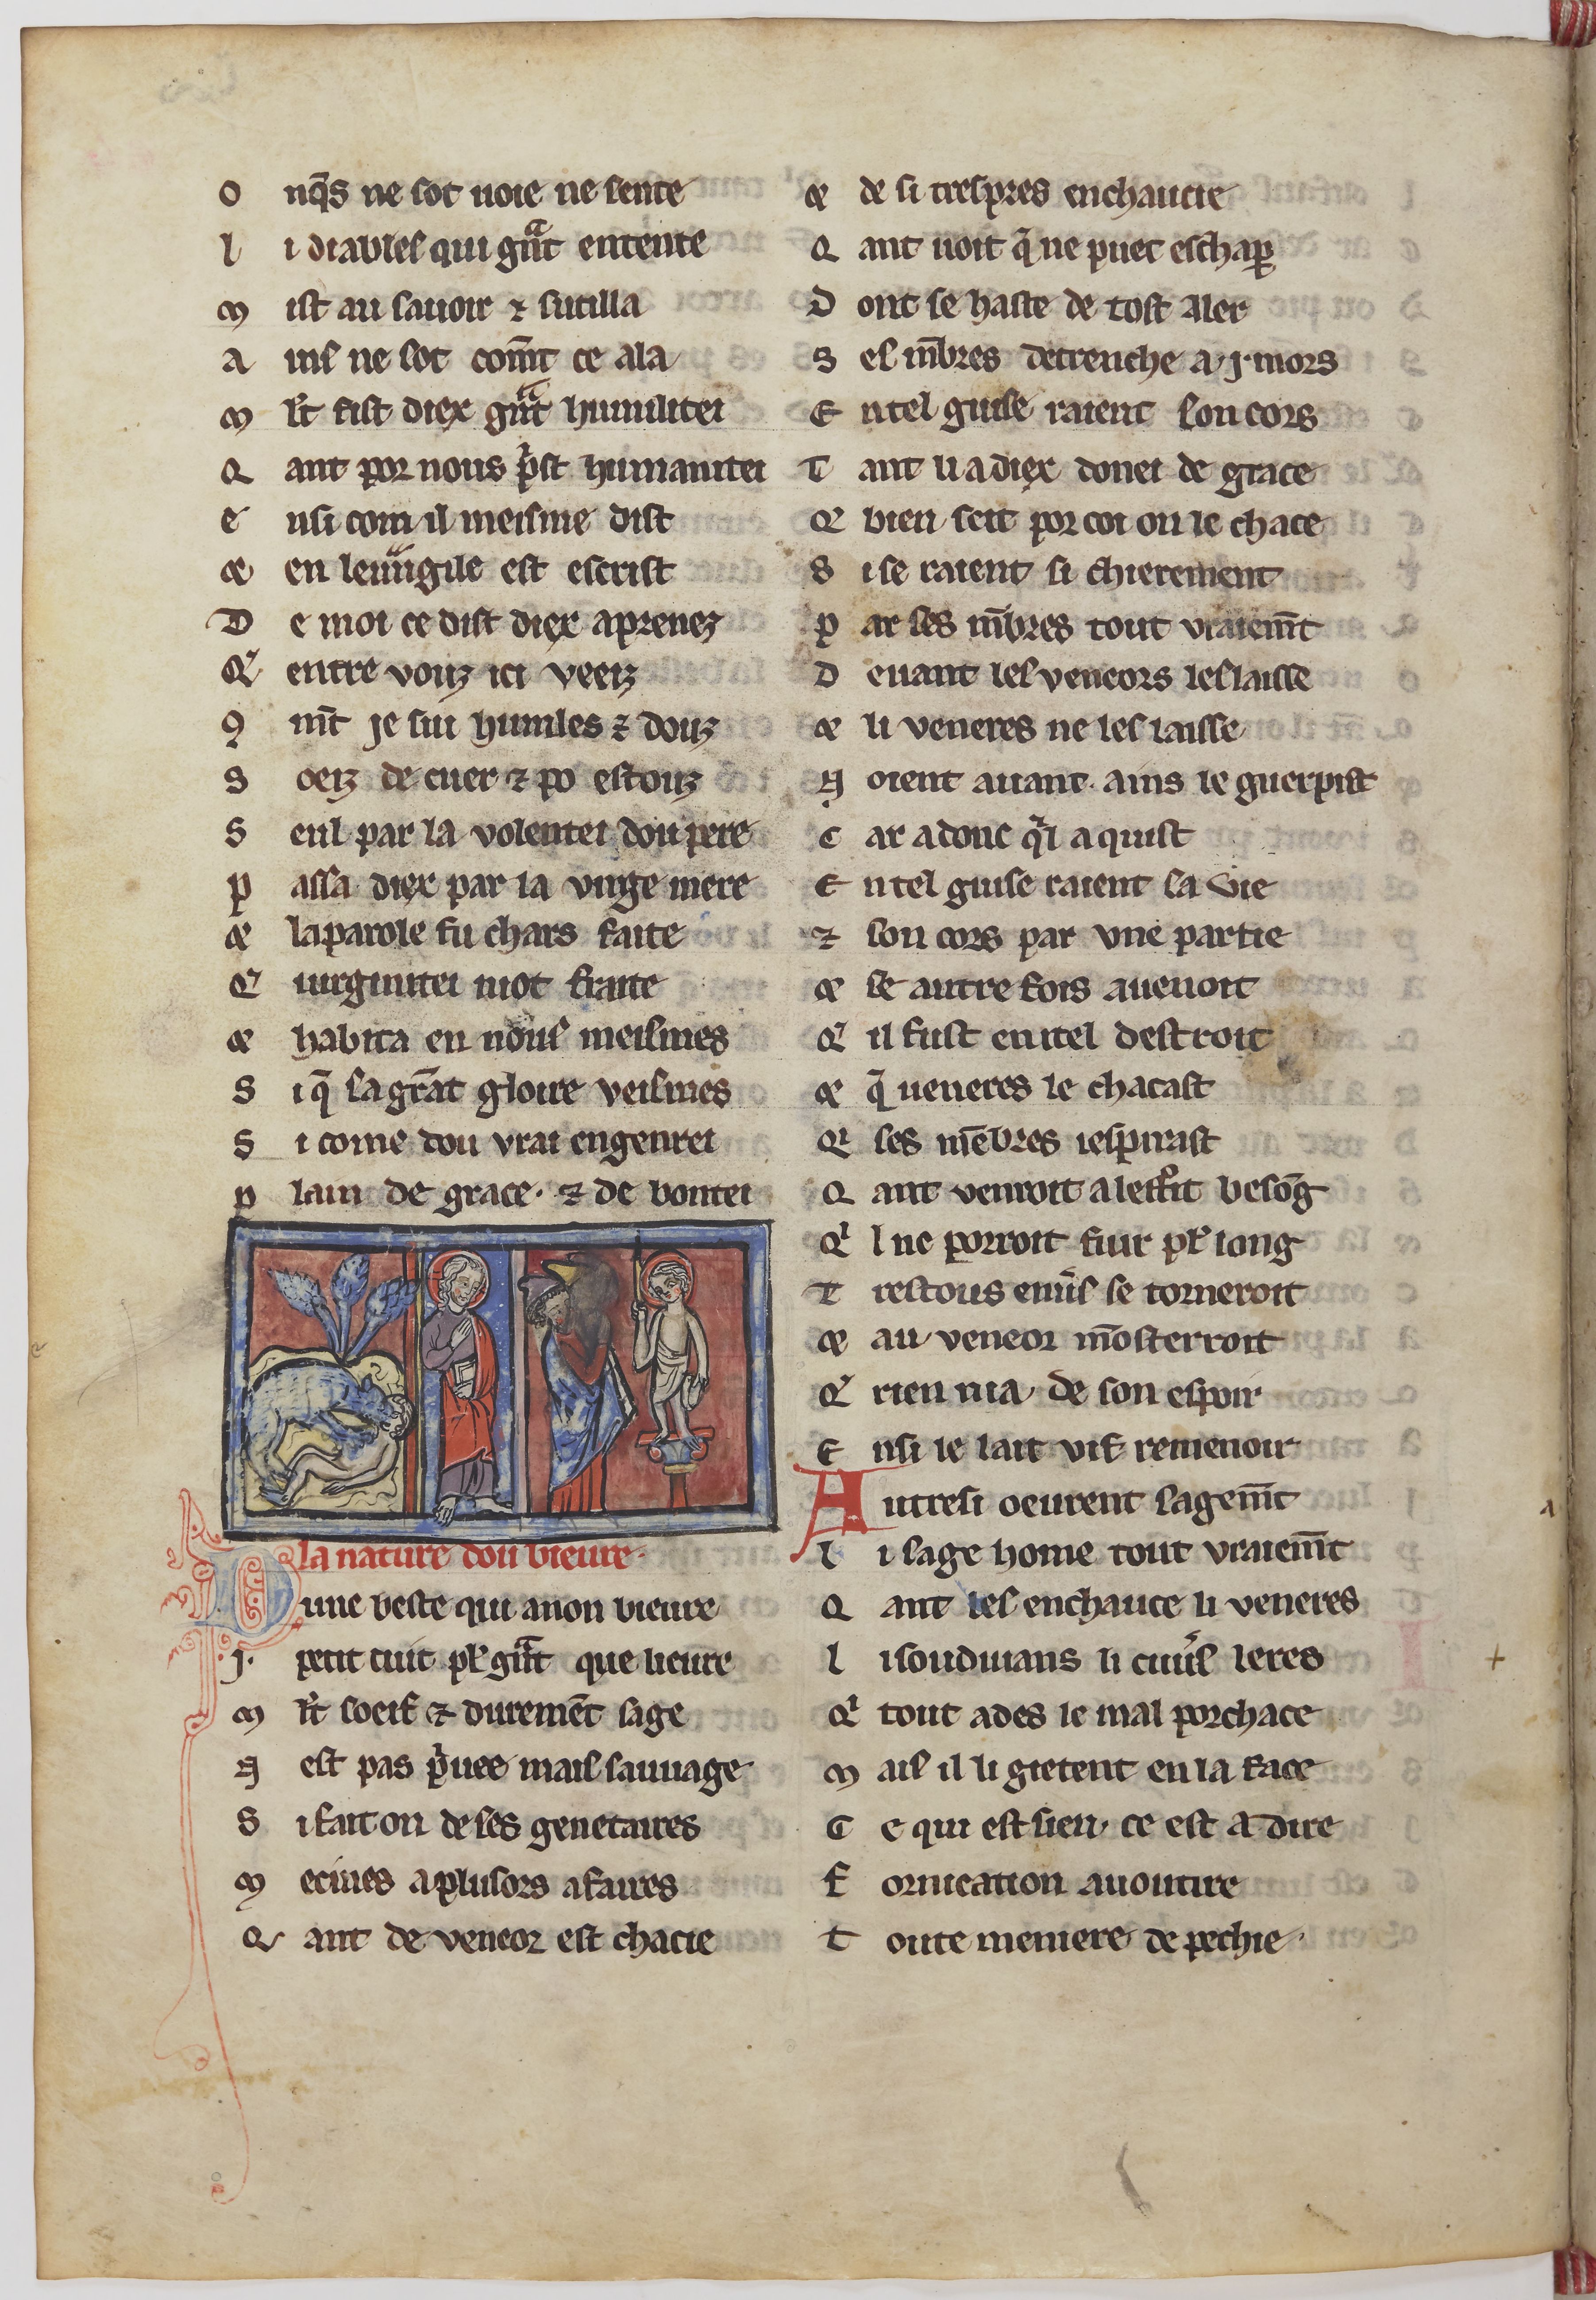 O nq̄s ne sot uoie ne sente
l i diables qui gͣnt entente
m ist au sauoir ⁊ sutilla
a ins ne sot com̄t ce ala
m lt̄ fist diex gͣnt humilitei
Q ant por nous pͥst humanitei
e nsi com il meisme dist
⁊ en leuͣngile est escrist
D e moi ce dist diex aprenez
Qͥ entre vouz ici veeiz
ꝯ m̄t je sui humles ⁊ douz
S oeiz de cuer ⁊ po estouz
S eul par la volentei dou pere
p assa diex par la virge mere
⁊ la parole fu chars faite
Qͥ uirginitei niot fraite
⁊ habita en nous meismes
S i q̄ sa grāt gloire veismes
S i come dou vrai engenrei
p lain de grace. ⁊ de bontei
la nature dou bieure.
D une beste qui a non bieure
.j. petit cuit pl͛ gͣnt que lieure
m lt̄ soeif ⁊ duremēt sage
N est pas pͥuee mais sauuage
S i fait on de ses genetaires
m ecines a plusors afaires
Q ant de veneor est chacie
⁊ de si trespres enchaucie
Q ant uoit q̄ ne puet eschaꝑ
D ont se haste de tost aler
S es m̄bres detrenche a .j. mors
E n tel guise raient son cors
T ant li a diex donei de grace
Qͥ bien seit por coi on le chace
S i se raient si chierement
p ar ses m̄bres tout vraiem̄t
D euant les veneors les laisse
⁊ li veneres ne les laisse
N oient auant. ains le guerpist
C ar adonc qͥl a quist
E n tel guise raient sa vie
⁊ son cors par vne partie
⁊ se autre fois auenoit
Qͥ il fust en itel destroit
⁊ q̄ ueneres le chacast
Qͥ ses mēbres iespirast
Q ant venroit a lestͦit besōg
Qͥ l ne porroit fuir pl͛ long
T restous enuͥs se torneroit
⁊ au veneor mōsterroit
Qͥ rien nia de son espoir
E nsi le lait vif remenoir
A utresi oeurent sagem̄t
l i sage home tout vraiem̄t
Q ant les enchauce li veneres
l i souduians li cuuͥs leres
Qͥ tout ades le mal porchace
m ais il li gietent en la face
C e qui est sien. ce est a dire
F ornication auoutire
T oute meniere de pechie.